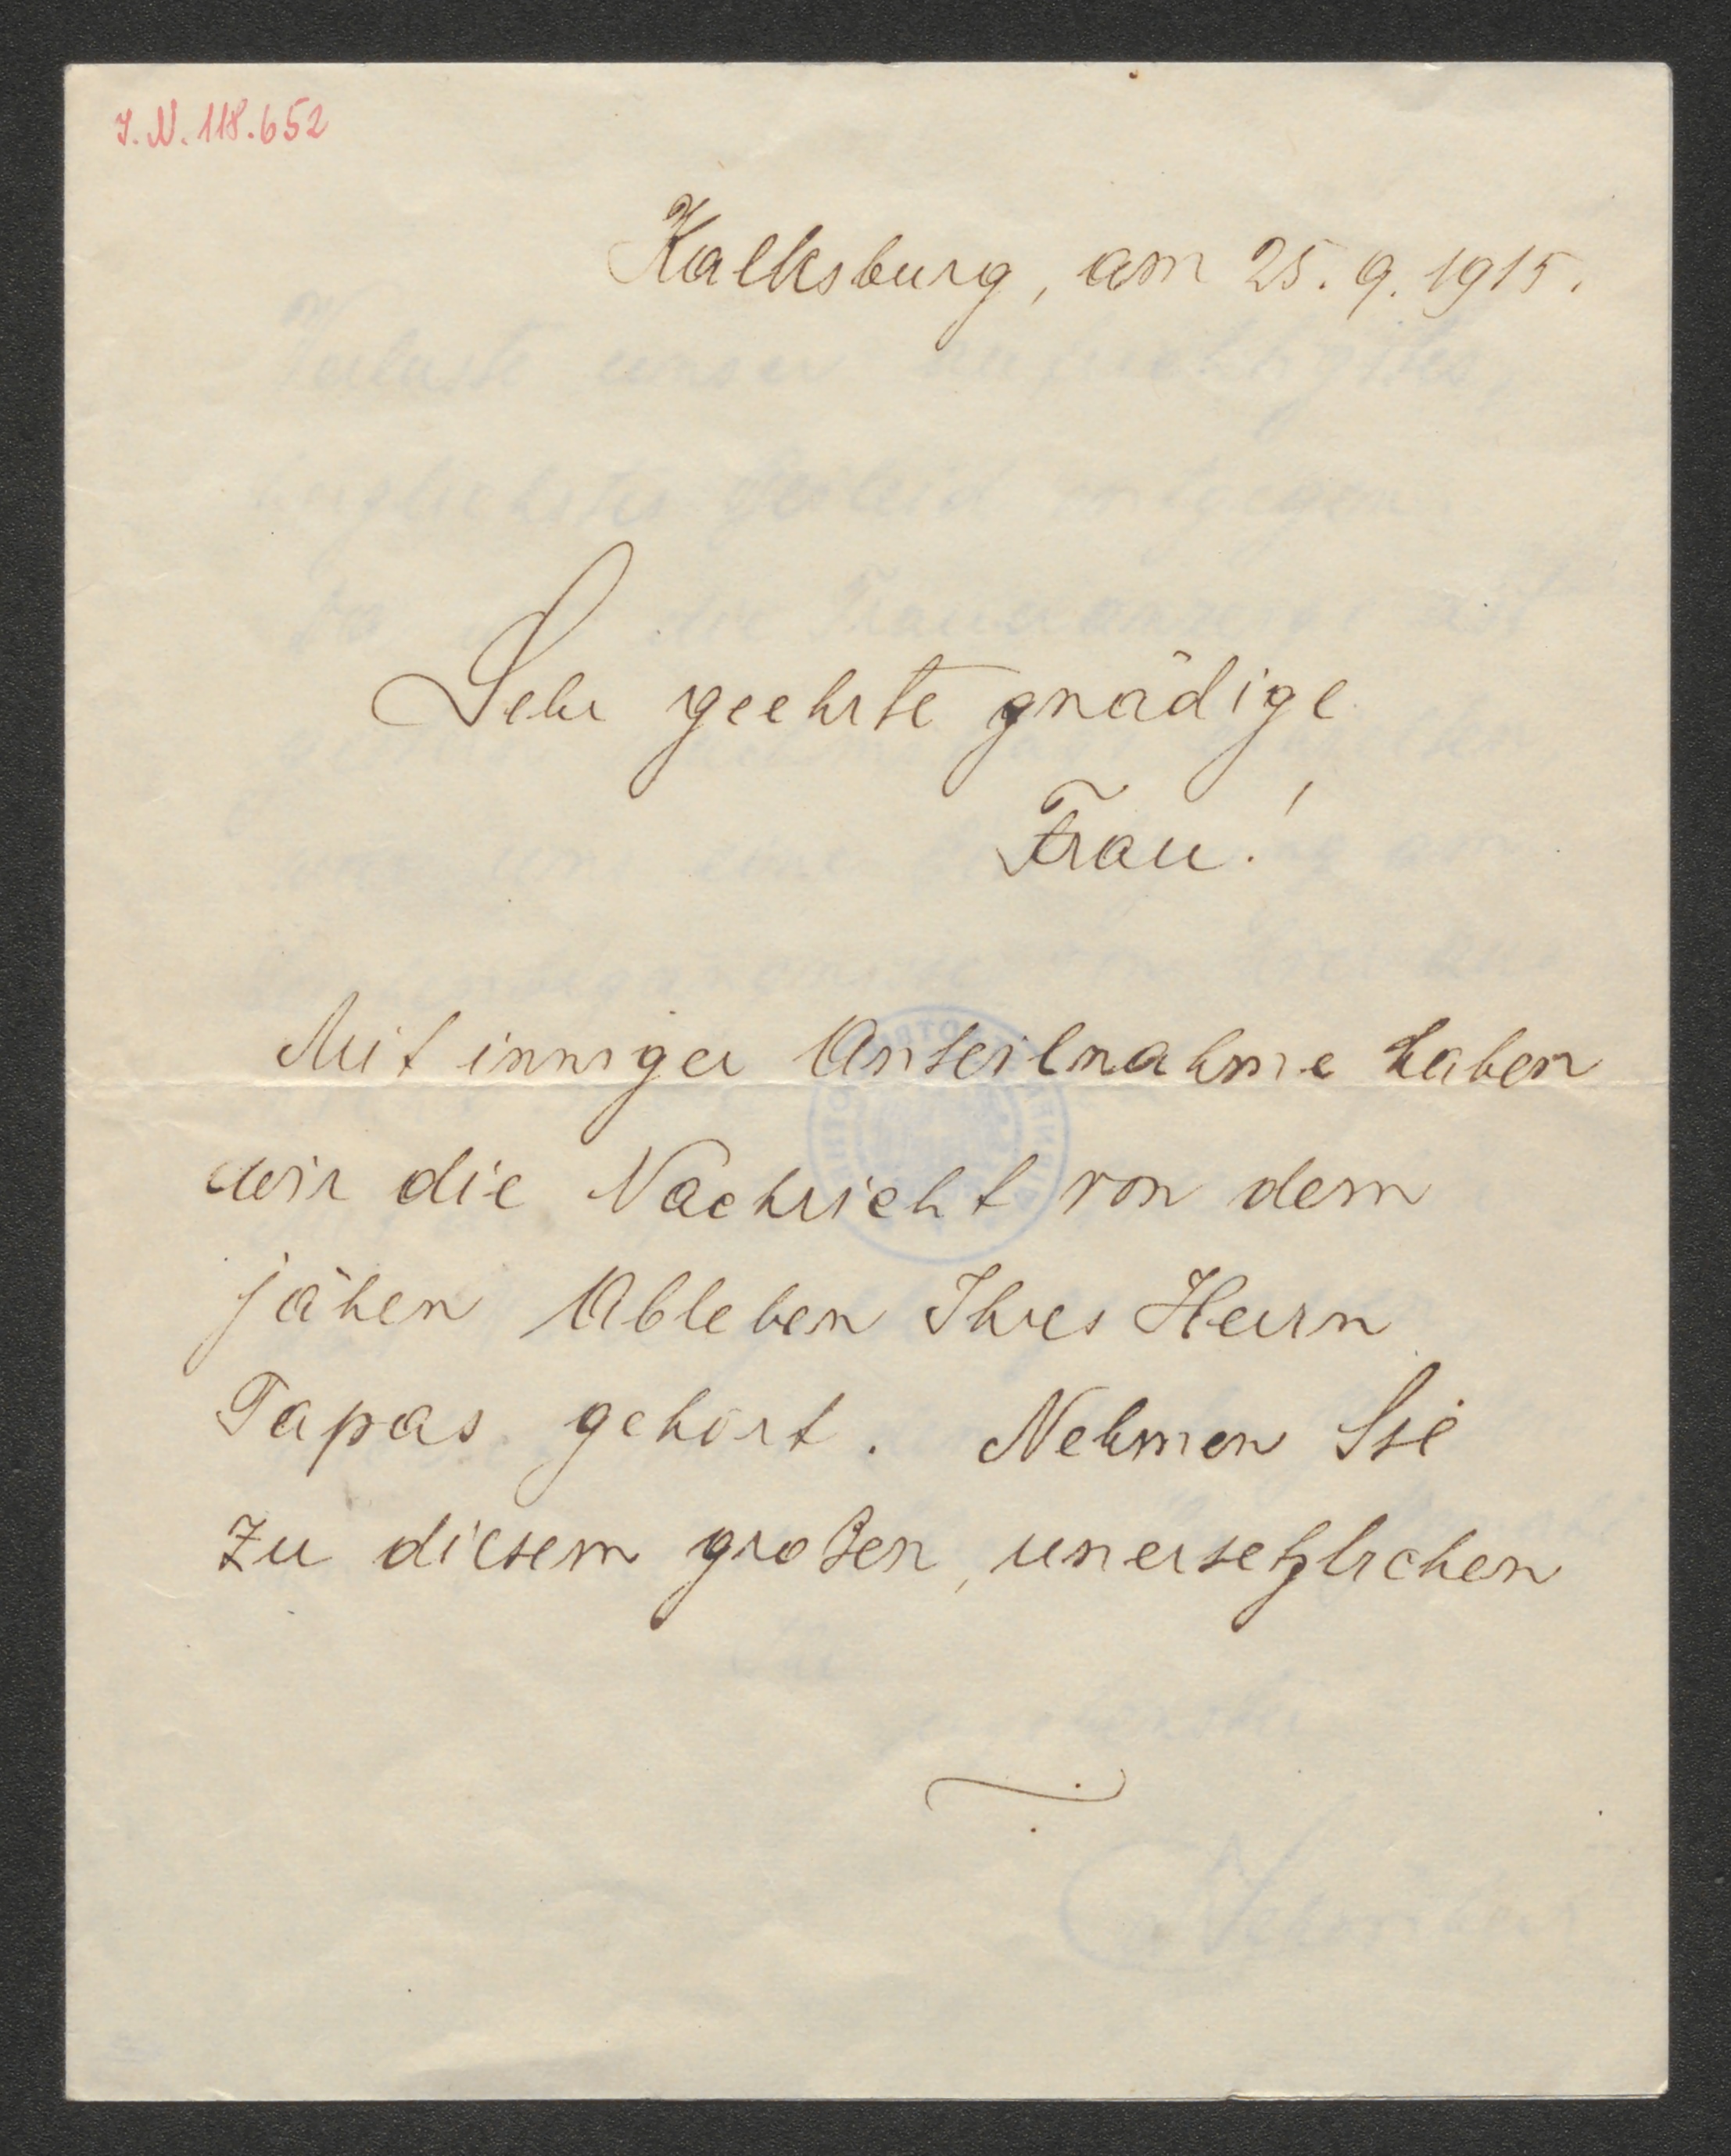 J.N. 118.652
Kalksburg, am 25. 9. 1915.
Sehr geehrte gnädige
Frau!
Mit inniger Anteilnahme haben
wir die Nachricht von dem
jähen Ableben Ihres Herrn
Papas gehört. Nehmen Sie
zu diesem großen, unersetzlichen